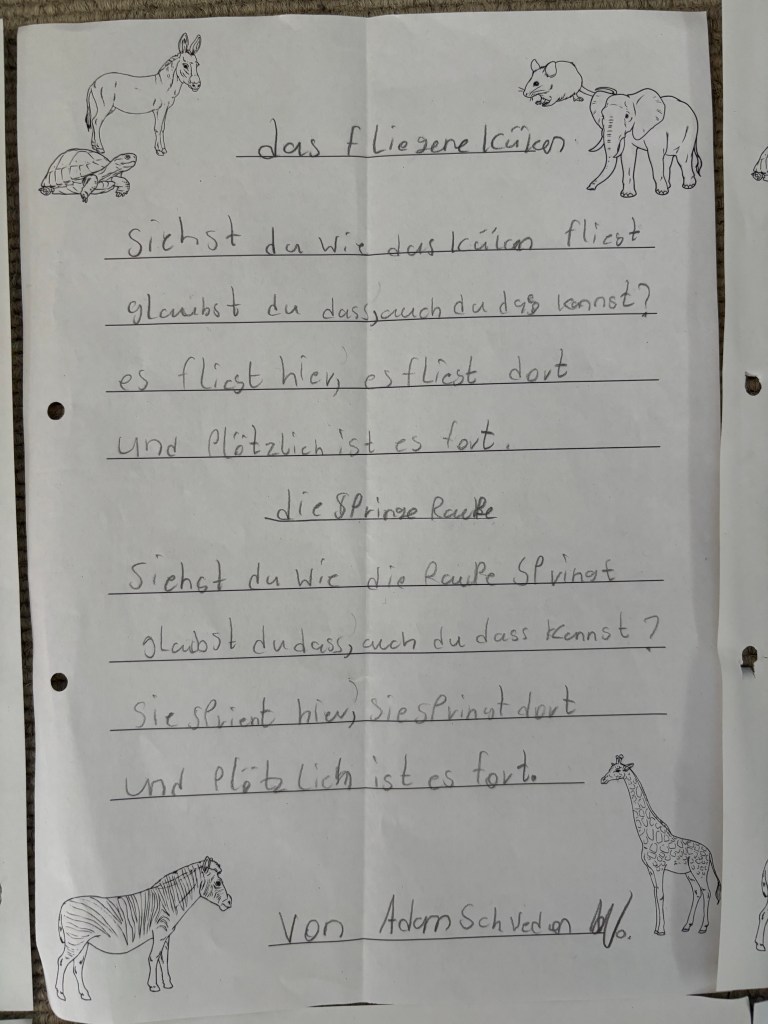 das fliegene Küken
Siehst du wie das Küken fliegt
glaubst du dass, auch du das kannst?
es fliegt hier, es fliest dort
und Plötzlich ist es fort.
die SPringe Raupe
Siehst du wie die Raupe SPringt
glaubst du dass, auch du dass kannst?
Sie sprient hier, sie springt dort
und Plötzlich ist es fort.
von Adam Schveden